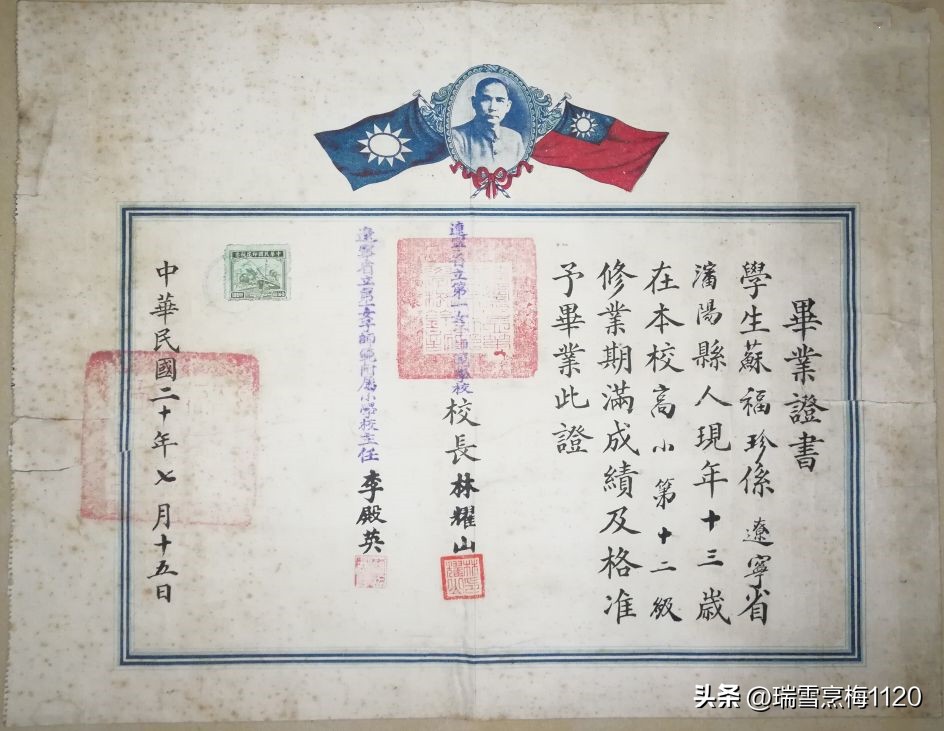 畢業證書
學生蘇福珍係遼寧省
瀋陽縣人現年十三歲
在本校高小第十二級
修業期滿成績及格准
予畢業此證
遼寧省立第一女子師範學校校長林耀山
遼寧省立第一女子師範附屬小學校主任李殿英
中華民國二十年七月十五日
头条 @瑞雪烹梅1120